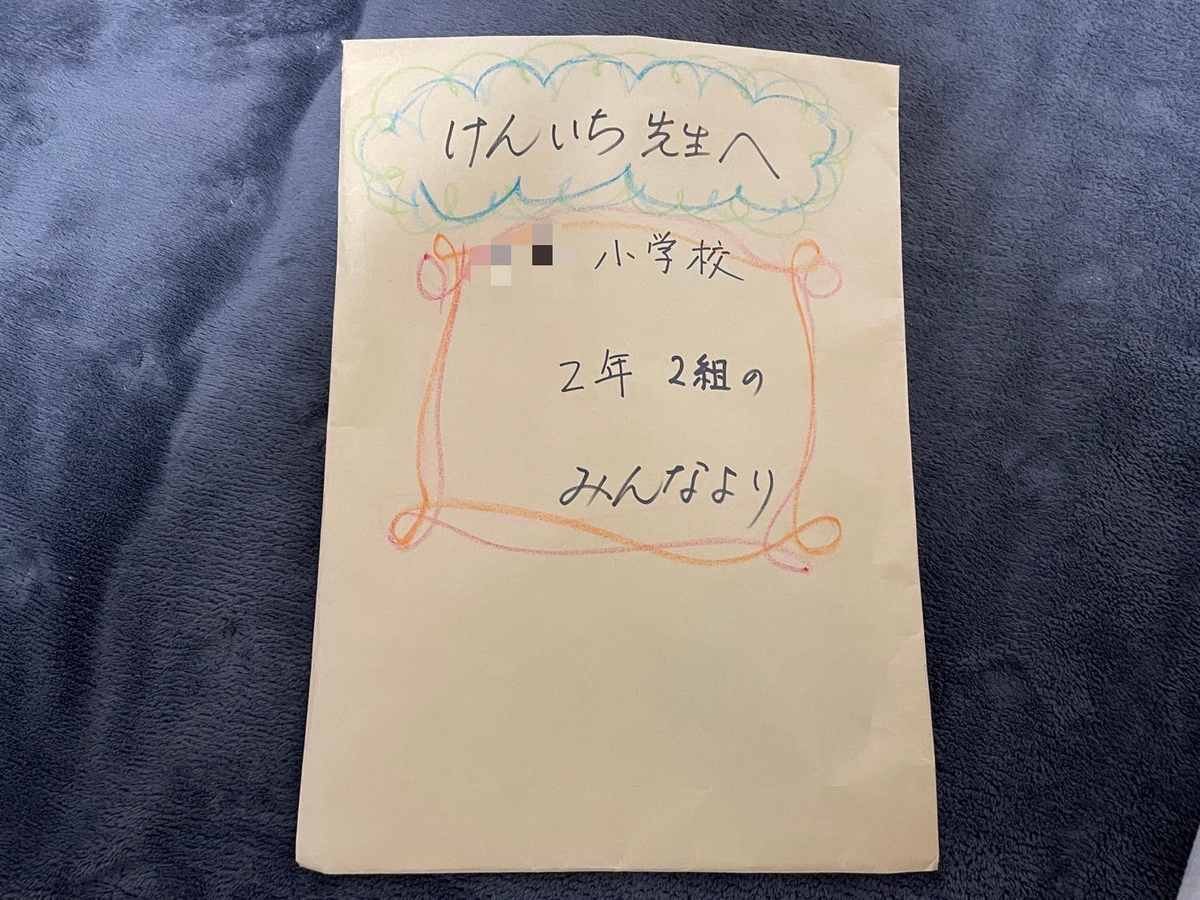 けんいち先生へ
小学校
2年 2組の
みんなより